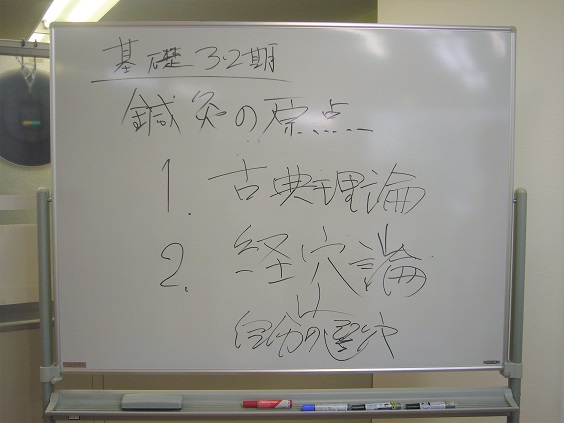 基礎32期
鍼灸の原点
1. 古典理論
2. 経穴論
自分の選穴